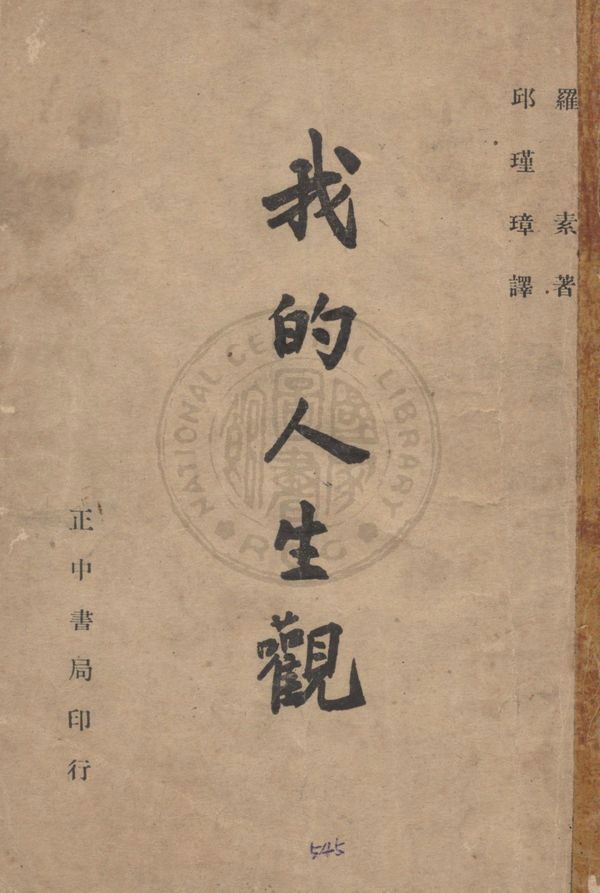 羅素著
邱瑾璋譯
我的人生觀
正中書局印行
NATIONAL CENTRAL LIBRARY
R.O.C
國家圖書館
545